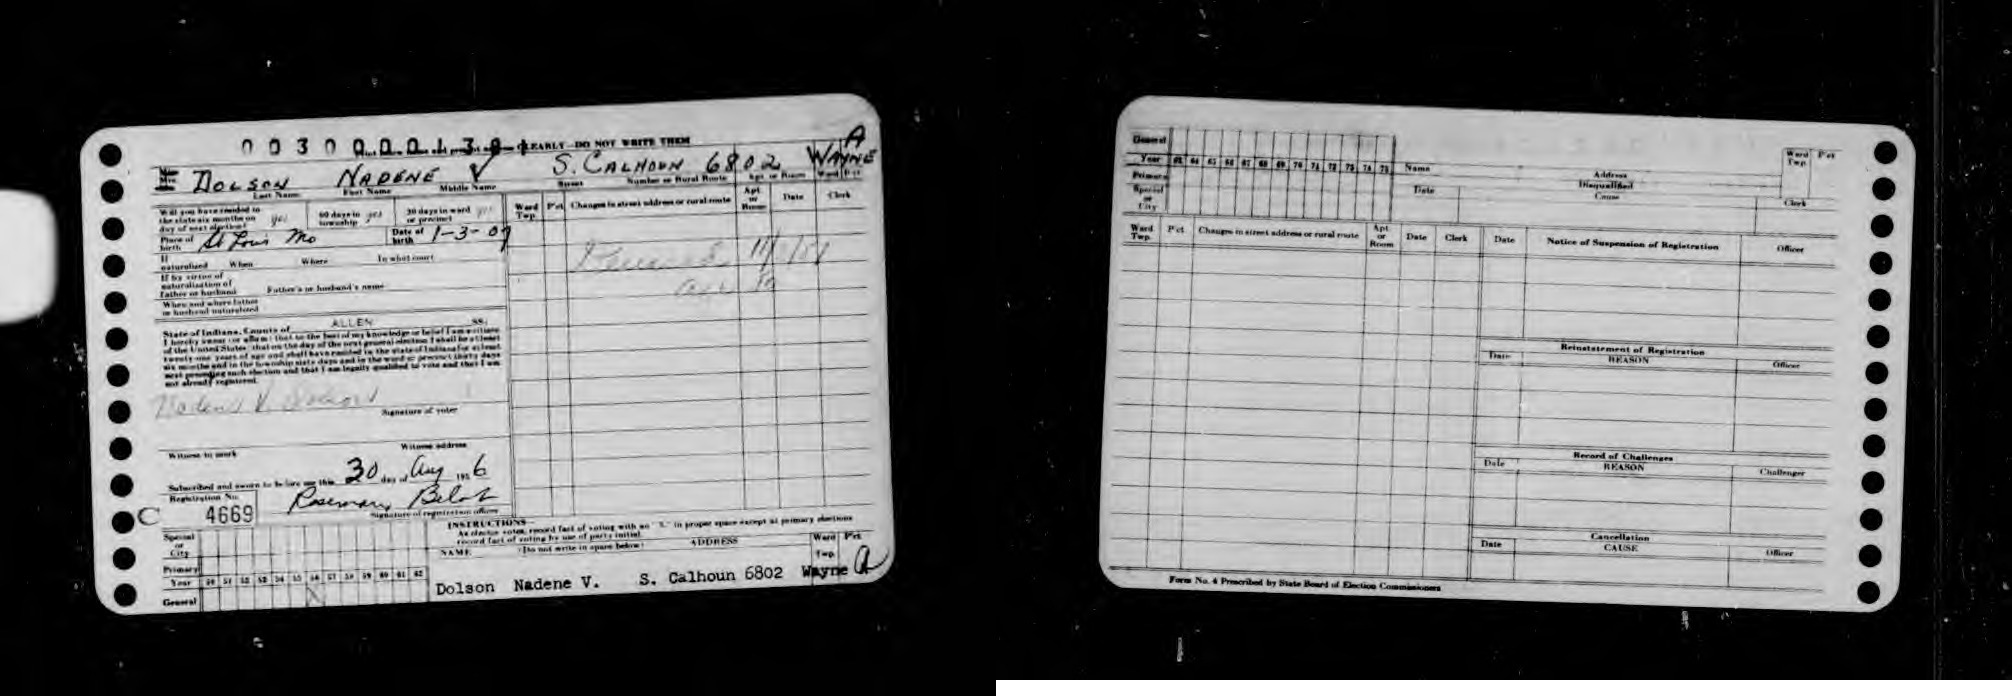 0 0 3 0 0 0 0 1 3 0 1 CLEARLY—DO NOT WRITE THEM
A
DOLSON NADENE V S. CALHOUN 6802 WAYNE
Last Name First Name Middle Name Street Number or Rural Route Apt. or Room Ward Pct.
Will you have resided in the state six months on day of next election? yes 60 days in township yes 30 days in ward or precinct yes
Place of birth St Louis Mo Date of birth 1-3-07
If naturalized When Where In what court
If by virtue of naturalization of father or husband Father's or husband's name
When and where father or husband naturalized
State of Indiana, County of ALLEN SS:
I hereby swear (or affirm) that to the best of my knowledge or belief I am a citizen
of the United States; that on the day of the next general election I shall be at least
twenty-one years of age and shall have resided in the state of Indiana for at least
six months and in the township sixty days and in the ward or precinct thirty days
next preceding such election and that I am legally qualified to vote and that I am
not already registered.
Nadene V. Dolson
Signature of voter
Witness to mark Witness address
Subscribed and sworn to before me this 30 day of Aug 1956
Registration No. Rosemary Belot
C 4669 Signature of registration officer
Ward Twp. Pct. Changes in street address or rural route Apt. or Room Date Clerk
INSTRUCTIONS—
As elector votes, record fact of voting with an "X" in proper space except at primary elections
record fact of voting by use of party initial.
Special or City
Primary
Year 50 51 52 53 54 55 56 57 58 59 60 61 62
General
NAME (Do not write in space below) ADDRESS Ward Twp. Pct.
Dolson Nadene V. S. Calhoun 6802 Wayne A
General
Year 63 64 65 66 67 68 69 70 71 72 73 74 75
Primary
Special or City
Name Address Ward Twp. Pct.
Date Disqualified Cause Clerk
Ward Twp. Pct. Changes in street address or rural route Apt. or Room Date Clerk
Date Notice of Suspension of Registration Officer
Reinstatement of Registration
Date REASON Officer
Record of Challenges
Date REASON Challenger
Cancellation
Date CAUSE Officer
Form No. 4 Prescribed by State Board of Election Commissioners